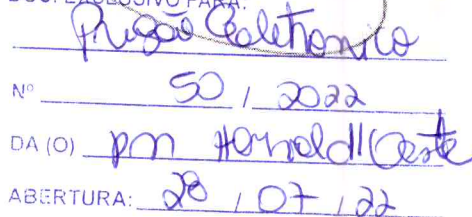 DOC. EXCLUSIVO PARA:
Pregão Eletronico
Nº 50 / 2022
DA (O) pm Herval d'Oeste
ABERTURA: 28 / 07 / 22